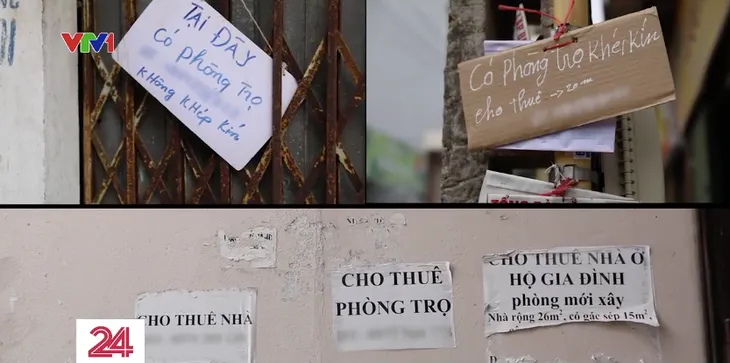 VTV1
TẠI ĐÂY
CÓ PHÒNG TRỌ
KHÔNG KHÉP KÍN
CÓ PHÒNG TRỌ KHÉP KÍN
cho thuê → 20m
CHO THUÊ NHÀ
CHO THUÊ
PHÒNG TRỌ
CHO THUÊ NHÀ Ở
HỘ GIA ĐÌNH
phòng mới xây
Nhà rộng 26m², có gác sép 15m².
24